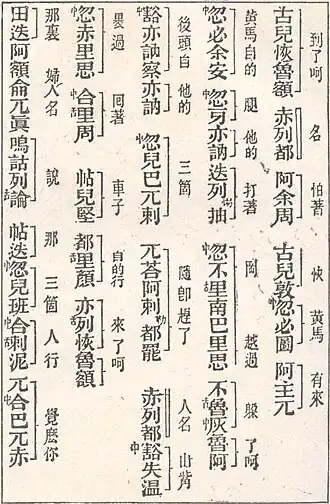 到了呵 名 怕著 快 黃馬 有來
古兒恢魯額 赤列都 阿余周 古兒敦中忽必圖 阿主兀
黃馬自的 腿他的 打著 岡 越過 躲了呵
中忽必余安 中忽牙亦訥 迭列抽 中忽不里南巴里思 不魯灰魯阿
後頭自他的 三箇 隨即趕了 人名 山觜
中豁亦訥察亦訥 中忽兒巴兀剌 兀荅阿剌都罷 赤列都中豁失温
過 回著 車子 自的行 來了呵
中忽赤里思 中合里周 帖兒堅 都里顏 亦列恢魯額
那裏 婦人名 說 那 三箇人行 覺麼你
田迭阿額侖兀真 鳴詁列論 帖迭中忽兒班中合剌泥 兀中合巴兀赤